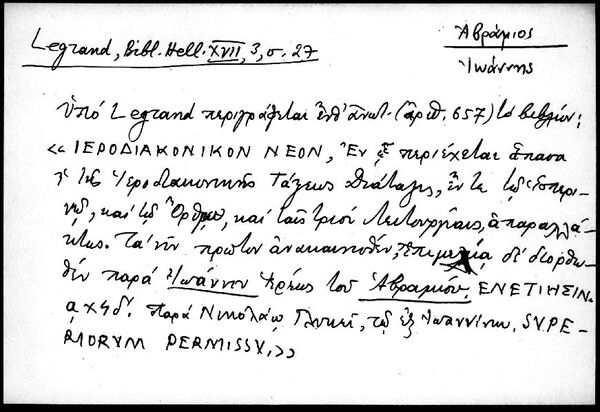 Legrand, Bibl. Hell. XVII, 3, σ. 27
Ἀβράμιος
Ἰωάννης
Ὑπό Legrand περιγράφεται ἐνθ' ἀνωτ. (ἀριθ. 657) τό βιβλίον:
«ΙΕΡΟΔΙΑΚΟΝΙΚΟΝ ΝΕΟΝ, Ἐν ᾧ περιέχεται ἅπασα
ἡ τῆς Ἱεροδιακονικῆς Τάξεως Διάταξις, ἔν τε τῷ Ἑσπερι-
νῷ, καί τῷ Ὄρθρῳ, καί ταῖς τρισί Λειτουργίαις, ἀπαραλλά-
κτως. Τά νῦν πρῶτον ἀνακαινισθέν, Ἐπιμελείᾳ δέ διορθω-
θέν παρά Ἰωάννου Ἱερέως τοῦ Ἀβραμίου. ΕΝΕΤΙΗΣΙΝ.
αχϟδ'. Παρά Νικολάῳ Γλυκεῖ, τῷ ἐξ Ἰωαννίνων. SVPE-
RIORVM PERMISSV.»